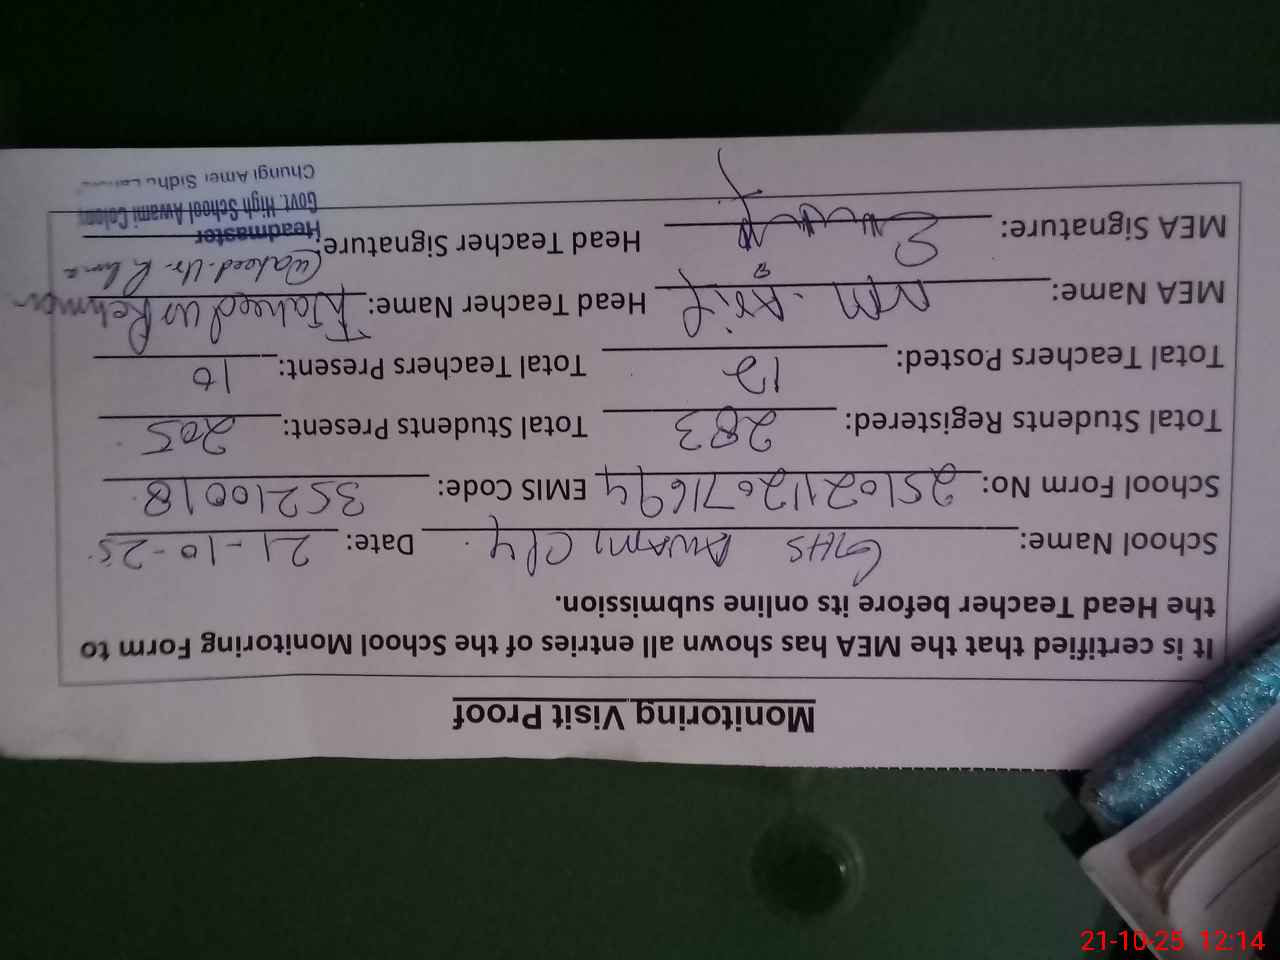 Monitoring Visit Proof
It is certified that the MEA has shown all entries of the School Monitoring Form to
the Head Teacher before its online submission.
School Name: GHS AWAMI Cly. Date: 21-10-25
School Form No: 251021120711694 EMIS Code: 35210018
Total Students Registered: 283 Total Students Present: 205
Total Teachers Posted: 12 Total Teachers Present: 10
MEA Name: M. Asif Head Teacher Name: Waheed Ur Rehman
MEA Signature: Head Teacher Signature: Waheed-Ur-Rhma
Headmaster
Govt. High School Awami Colony
Chungi Amer Sidhu Lahore
21-10-25 12:14